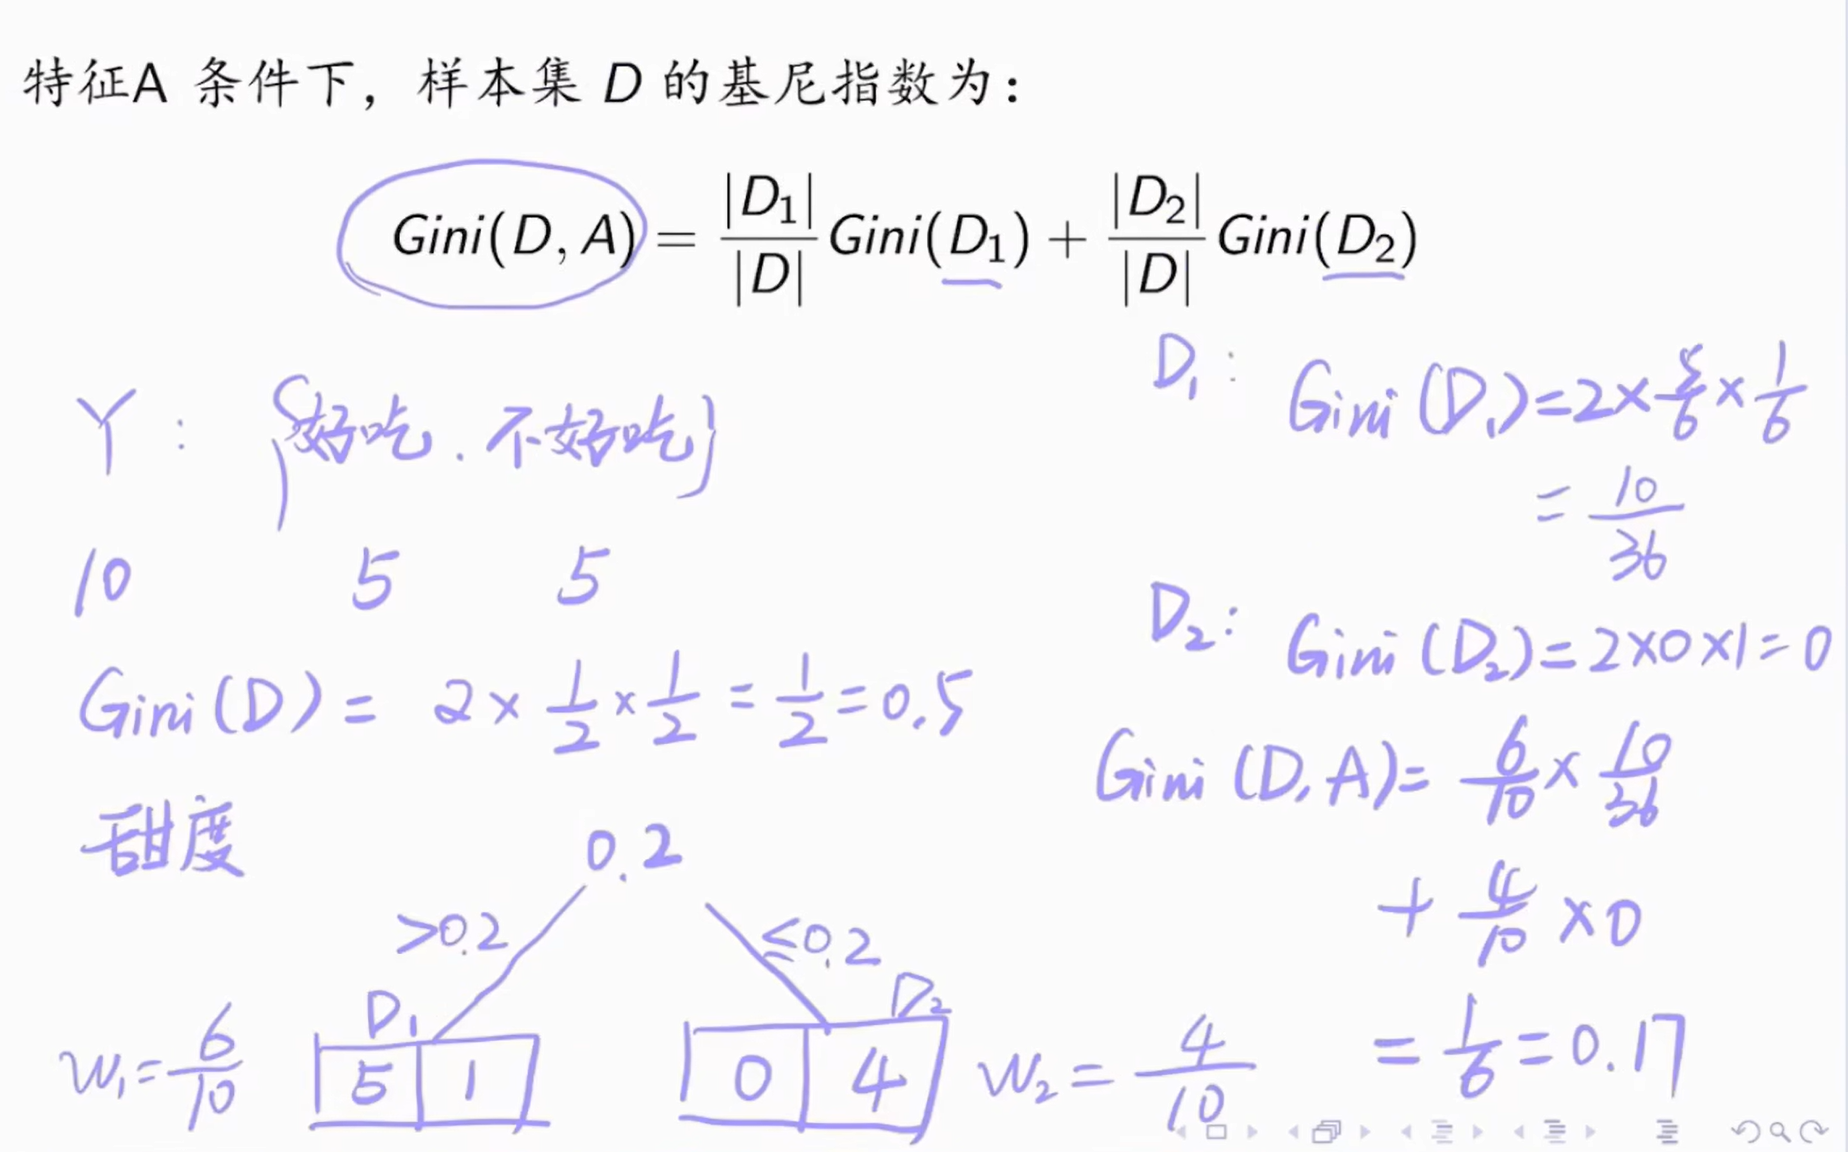 特征A 条件下，样本集 D 的基尼指数为：
Gini(D, A) = |D₁|/|D| Gini(D₁) + |D₂|/|D| Gini(D₂)
Y : {好吃. 不好吃}
10 5 5
Gini(D) = 2 × 1/2 × 1/2 = 1/2 = 0.5
甜度
0.2
>0.2 ≤0.2
D₁ D₂
W₁ = 6/10 5 1 0 4 W₂ = 4/10
D₁ : Gini(D₁) = 2 × 5/6 × 1/6
= 10/36
D₂ : Gini(D₂) = 2×0×1 = 0
Gini(D, A) = 6/10 × 10/36
+ 4/10 × 0
= 1/6 = 0.17